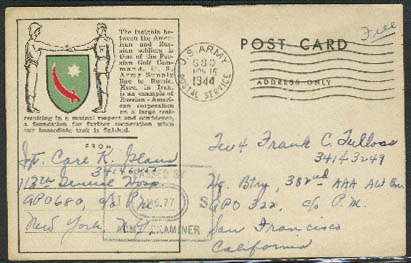 The insignia
between the Amer-
ican and Rus-
sian soldiers is
that of the Per-
sian Gulf Com-
mand, U. S.
Army Supply
line to Russia.
Here, in Iran,
is an example of
Russian - Amer-
ican cooperation
on a large scale
resulting in a mutual respect and confidence,
a foundation for further cooperation when
our immediate task is finished.
FROM
113th Service Hosp.
APO 680, c/o P.M.
New York N.Y.
U.S. ARMY
680
15
1944
POSTAL SERVICE
POST CARD
Free
ADDRESS ONLY
PASSED BY
EXAMINER
Frank C. Tullos
34143249
Hq. Btry, 382nd AAA AW Bn.
APO 322, c/o P.M.
San Francisco
California